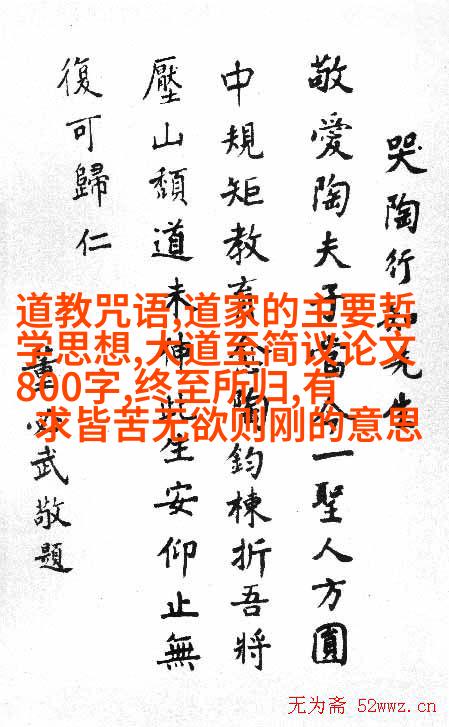 哭陶行知先生
敬愛陶夫子當今一聖人方圓
中規矩教育念陶鈞棟折吾將
壓山頹道未伸此生安仰止無
復可歸仁
董必武敬題
道教咒语,道家的主要哲
学思想,大道至简议论文
800字,终至所归,有
求皆苦无欲则刚的意思
无为斋 52wwz.cn